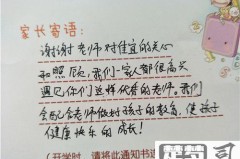 家长寄语:
谢谢老师对佳宜的关心
和照顾,我们一家人都很高兴
遇见你们这样优秀的老师。我们
会配合老师做好孩子的教育,使孩子
健康快乐的成长!
(开学时,请将此通知书送